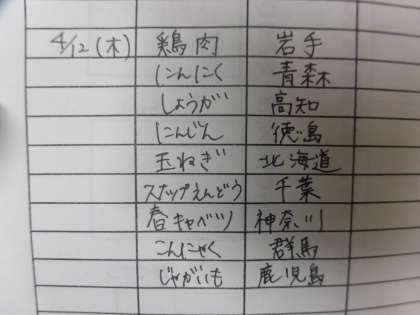 4/12(木) 鶏肉 岩手
にんにく 青森
しょうが 高知
にんじん 徳島
玉ねぎ 北海道
スナップえんどう 千葉
春キャベツ 神奈川
こんにゃく 群馬
じゃがいも 鹿児島